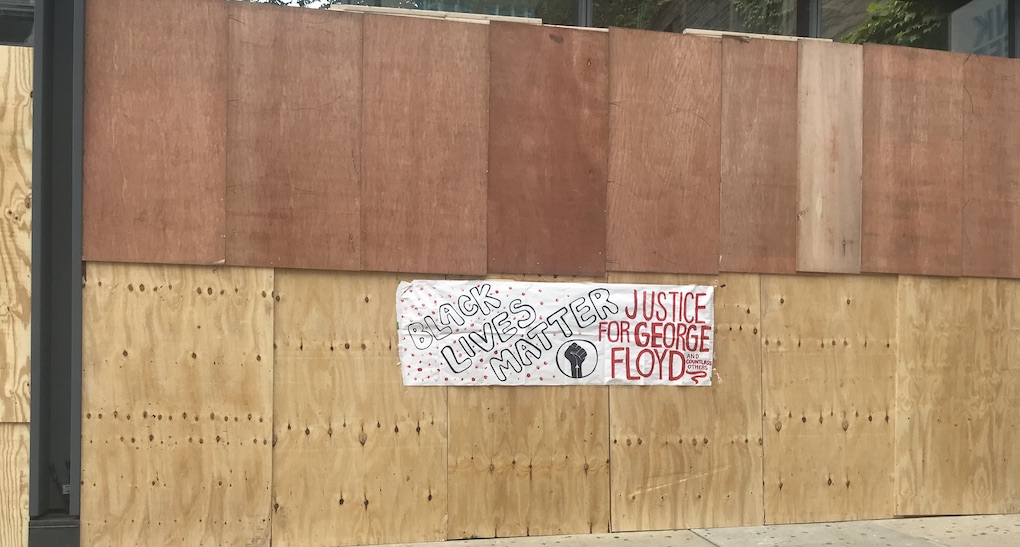 BLACK
LIVES
MATTER
JUSTICE
FOR GEORGE
FLOYD
AND
COUNTLESS
OTHERS